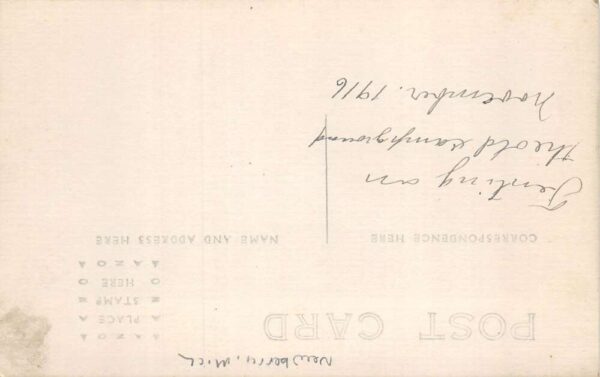 Newberry, Mich
POST CARD
AZOA
PLACE
STAMP
HERE
AZOA
CORRESPONDENCE HERE
NAME AND ADDRESS HERE
Tenting on
the old campground
November. 1916